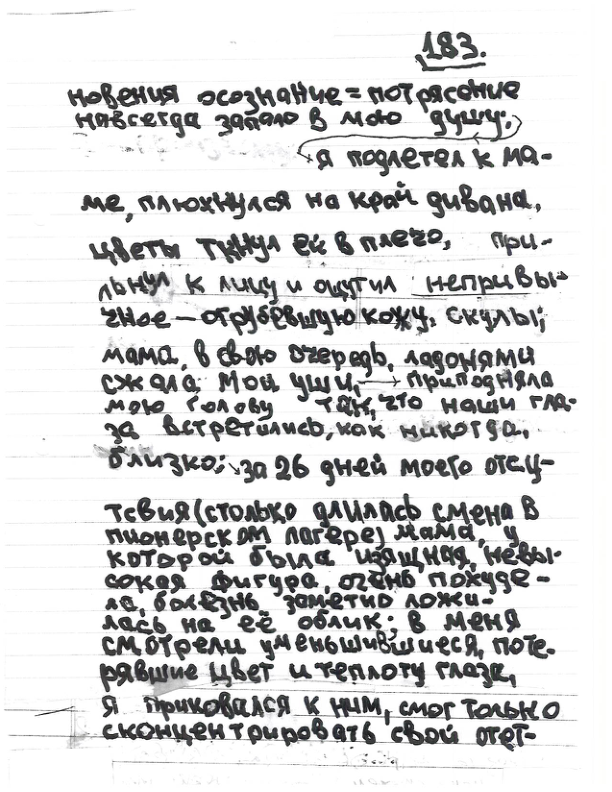 183.
новения осознание = потрясение
навсегда запало в мою душу.
я подлетел к ма-
ме, плюхнулся на край дивана,
цветы ткнул ей в плечо, при-
льнул к лицу и ощутил непривы-
чное – огрубевшую кожу, скулы;
мама, в свою очередь, ладонями
сжала мои уши, приподняла
мою голову так, что наши гла-
за встретились, как никогда,
близко; за 26 дней моего отсу-
тсвия (столько длилась смена в
пионерском лагере) мама, у
которой была изящная, невы-
сокая фигура, очень похуде-
ла, болезнь заметно ложи-
лась на её облик; в меня
смотрели уменьшившиеся, поте-
рявшие цвет и теплоту глаза,
я приковался к ним, смог только
сконцентрировать свой ответ-